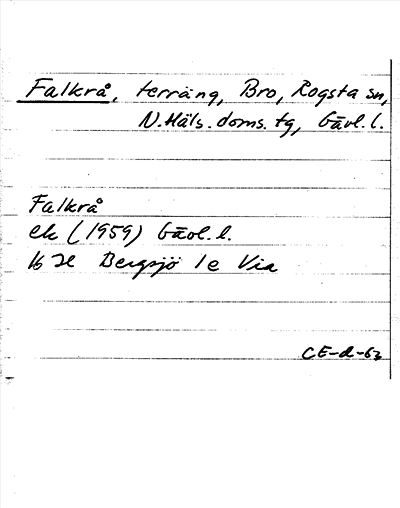 Falkrå, terräng, Bro, Rogsta sn,
N. Häls. doms. tg, Gävl. l.
Falkrå
ek (1959) Gävl. l.
16 H Bergsjö 1e Via
CE-d-63